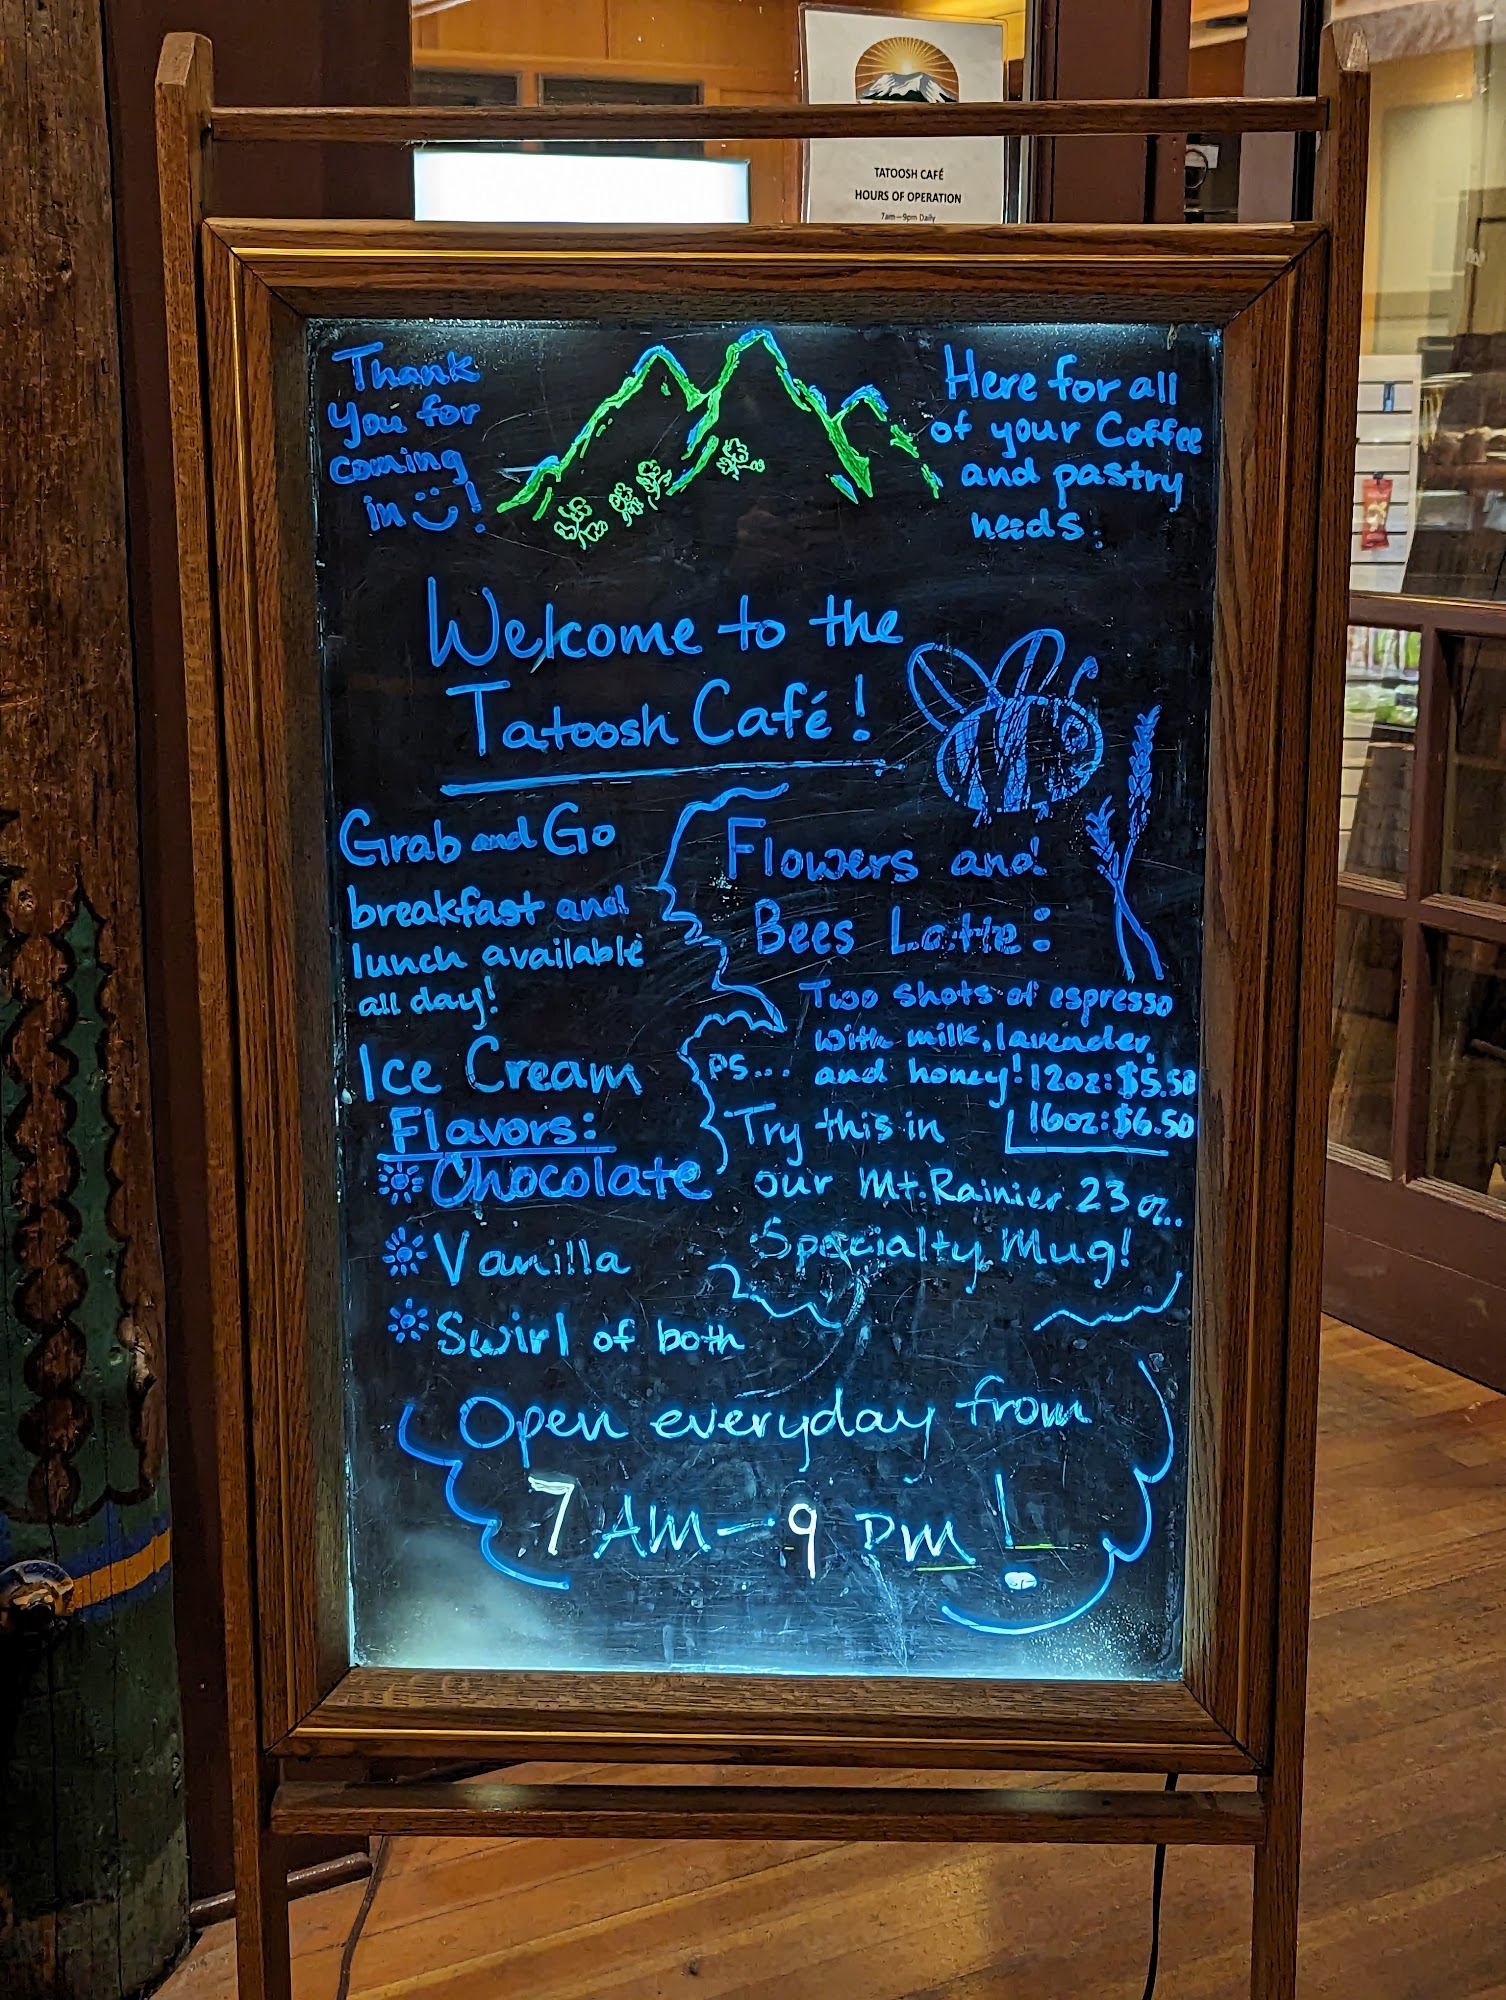 TATOOSH CAFÉ
HOURS OF OPERATION
7am—9pm Daily
Thank
you for
coming
in !
Here for all
of your Coffee
and pastry
needs.
Welcome to the
Tatoosh Café!
Grab and Go
breakfast and
lunch available
all day!
Ice Cream
Flavors:
Chocolate
Vanilla
Swirl of both
Flowers and
Bees Latte:
Two shots of espresso
with milk, lavender,
and honey! 12oz: $5.50
16oz: $6.50
PS...
Try this in
our Mt. Rainier 23 oz.
Specialty Mug!
Open everyday from
7 AM - 9 PM !